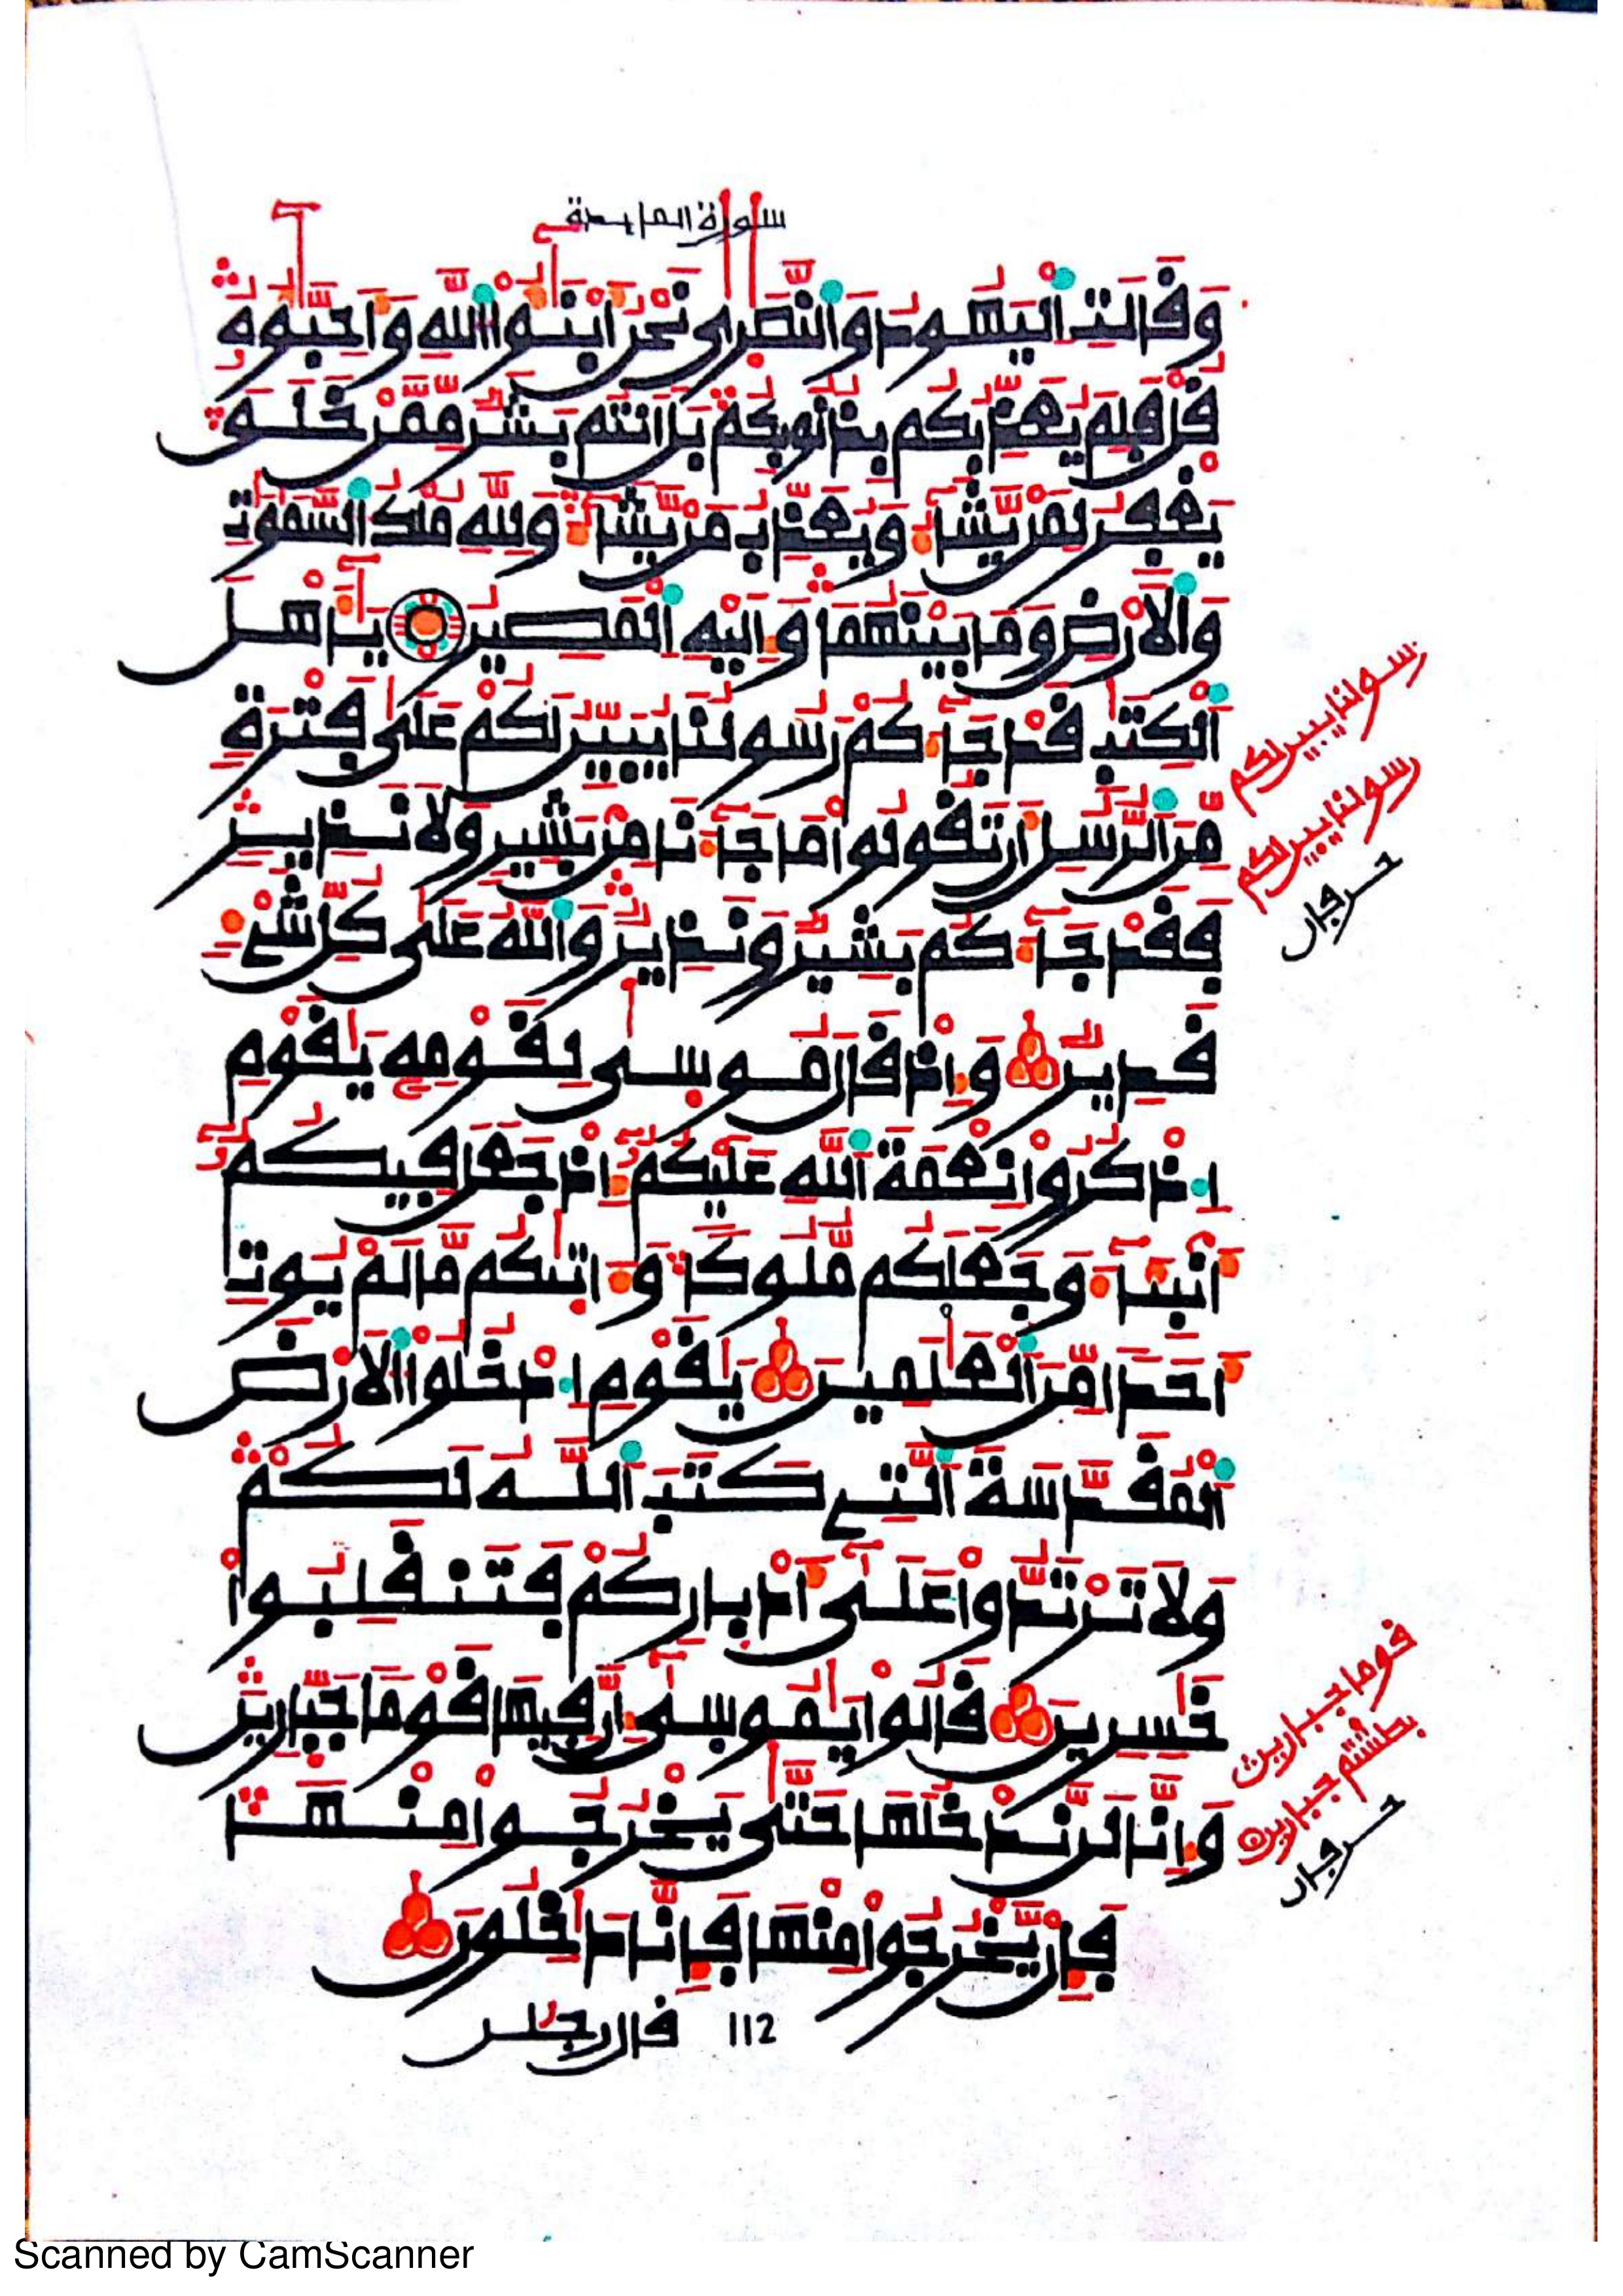 سورة المايدة
وَقَالَتِ اِ۬لْيَهُودُ وَالنَّصَٰرٜىٰ نَحْنُ أَبْنَٰٓؤُاْ اُ۬للَّهِ وَأَحِبَّٰٓؤُهُۥۖ
قُلْ فَلِمَ يُعَذِّبُكُم بِذُنُوبِكُمۖ بَلَ اَنتُم بَشَرٞ مِّمَّنْ خَلَقَۖ
يَغْفِرُ لِمَنْ يَّشَآءُ وَيُعَذِّبُ مَنْ يَّشَآءُۖ وَلِلهِ مُلْكُ اُ۬لسَّمَٰوَٰتِ
وَالَارْضِ وَمَا بَيْنَهُمَاۖ وَإِلَيْهِ اِ۬لْمَصِيرُ يَٰٓأَهْلَ
اَ۬لْكِتَٰبِ قَدْ جَآءَكُمْ رَسُولُنَا يُبَيِّنُ لَكُمْ عَلَىٰ فَتْرَةٖ
مِّنَ اَ۬لرُّسُلِ أَن تَقُولُواْ مَا جَآءَنَا مِنۢ بَشِيرٖ وَلَا نَذِيرٖۖ
فَقَدْ جَآءَكُم بَشِيرٞ وَنَذِيرٞۖ وَاللَّهُ عَلَىٰ كُلِّ شَےْءٖ
قَدِيرٞ وَإِذْ قَالَ مُوسٜىٰ لِقَوْمِهِۦ يَٰقَوْمِ
اِ۟ذْكُرُواْ نِعْمَةَ اَ۬للَّهِ عَلَيْكُمُۥٓ إِذْ جَعَلَ فِيكُمُۥٓ
أَنۢبِئَآءَ وَجَعَلَكُم مُّلُوكاٗۖ وَءَاتٜىٰكُم مَّا لَمْ يُوتِ
أَحَداٗ مِّنَ اَ۬لْعَٰلَمِينَ يَٰقَوْمِ اِ۟دْخُلُواْ اُ۬لَارْضَ
اَ۬لْمُقَدَّسَةَ اَ۬لتِے كَتَبَ اَ۬للَّهُ لَكُمْۖ
وَلَا تَرْتَدُّواْ عَلَىٰٓ أَدْبٜارِكُمْ فَتَنقَلِبُواْ
خَٰسِرِينَ قَالُواْ يَٰمُوسٜىٰٓ إِنَّ فِيهَا قَوْماٗ جَبّٜارِينَۖ
وَإِنَّا لَن نَّدْخُلَهَا حَتَّىٰ يَخْرُجُواْ مِنْهَاۖ
فَإِنْ يَّخْرُجُواْ مِنْهَا فَإِنَّا دَٰخِلُونَ
112 قال رجلن
رسولنا يبين لكم
رسولنا يبين لكم
حرفان
قوما جبارين
بطشتم جبارين
حرفان
Scanned by CamScanner